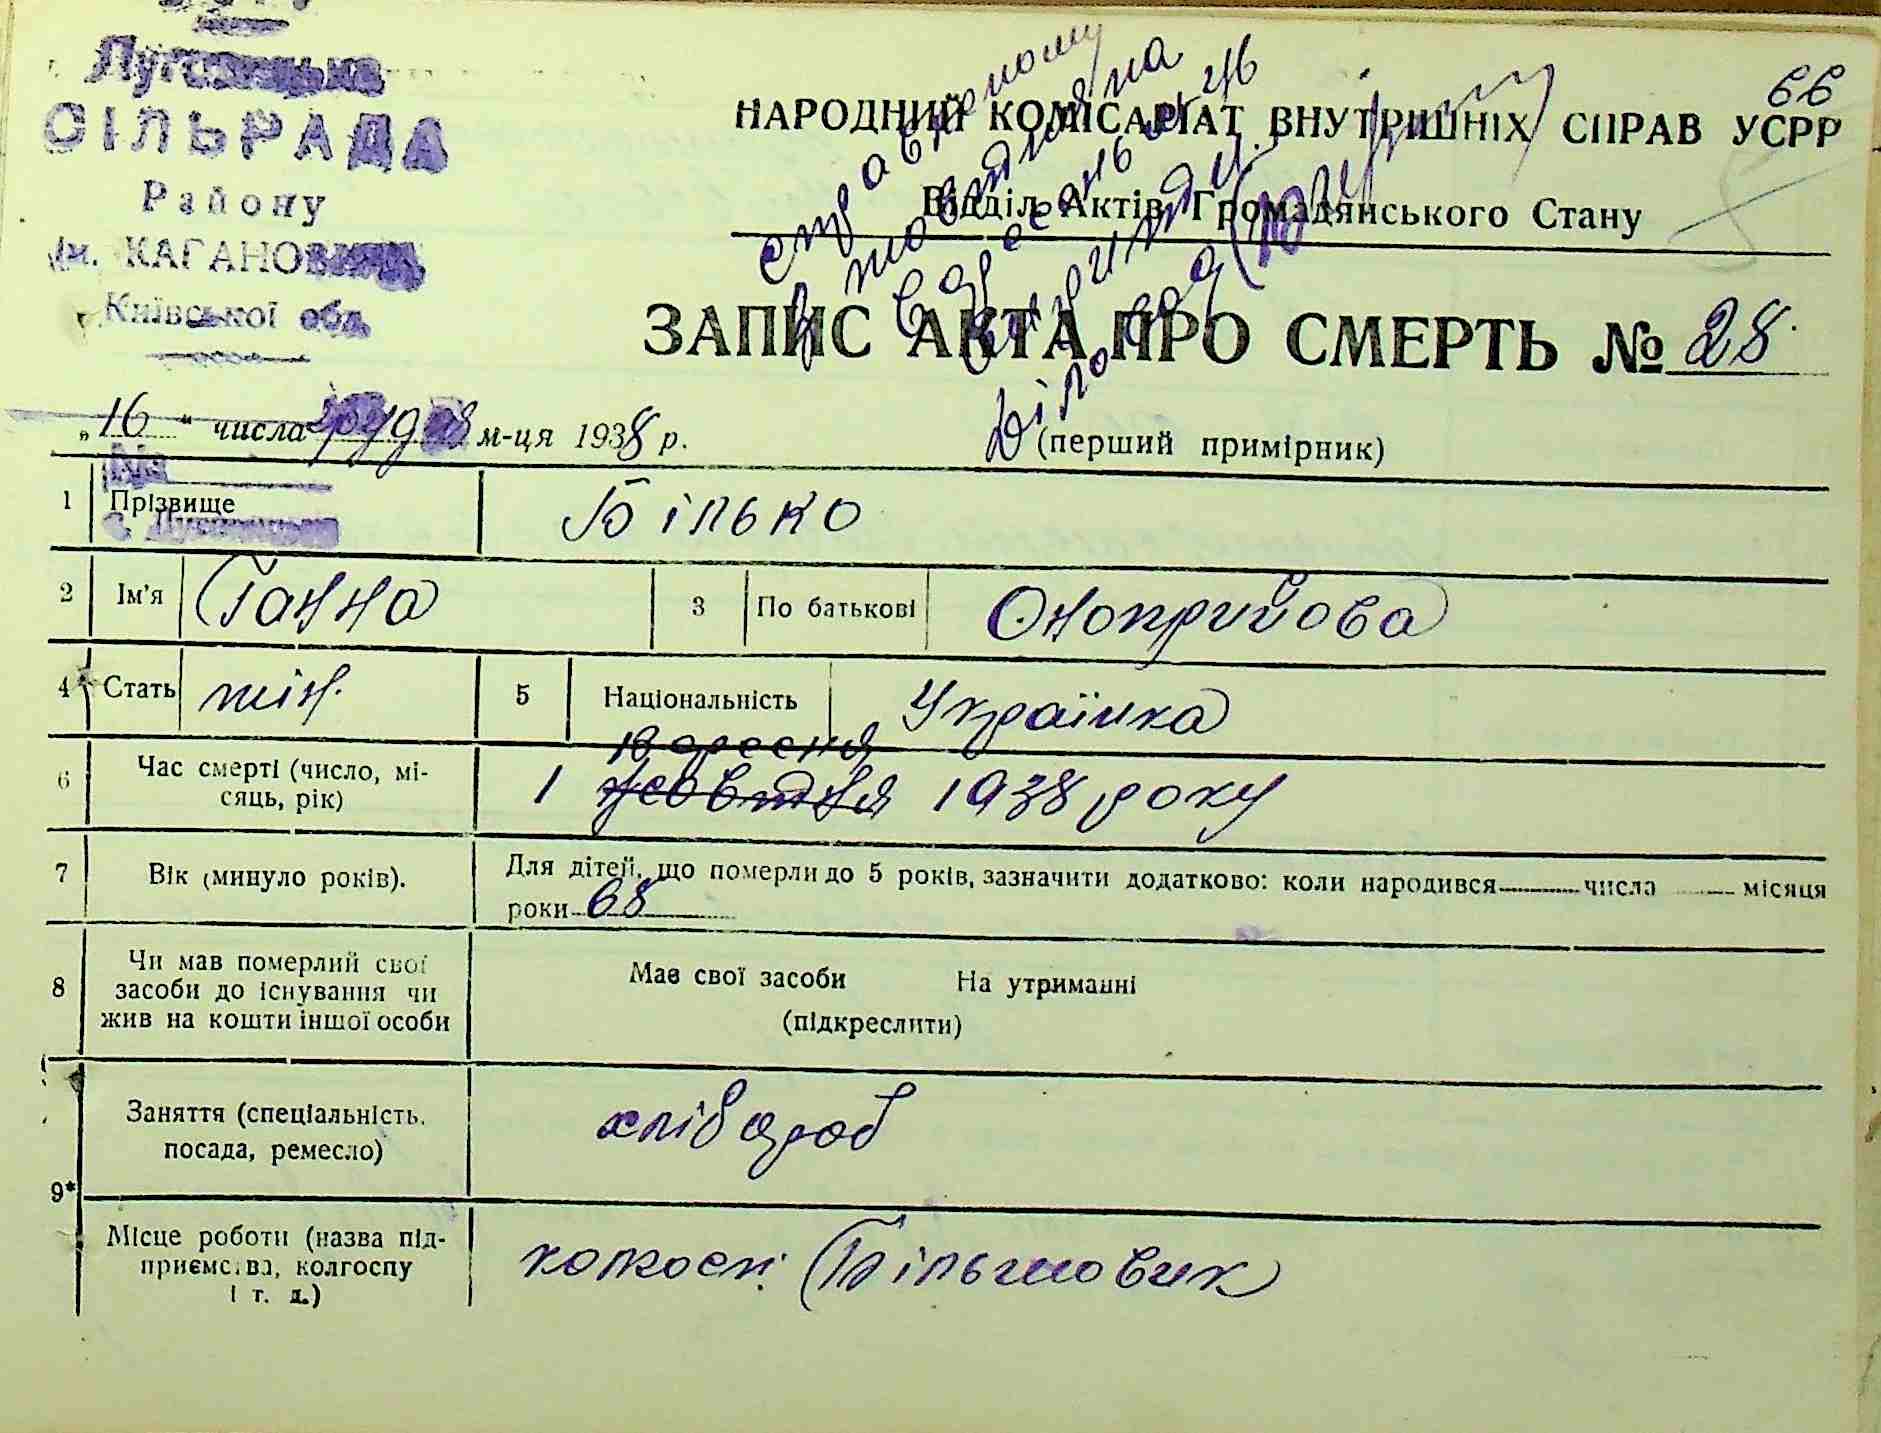 СІЛЬРАДА
Району
ім. КАГАНОВИЧА
Київської обл.
66
НАРОДНИЙ КОМІСАРІАТ ВНУТРІШНІХ СПРАВ УСРР
Відділ Актів Громадянського Стану
справленому
з жовтня на
вересень місяць
вірити
Діловод
ЗАПИС АКТА ПРО СМЕРТЬ № 28
„16“ числа грудня м-ця 1938 р.
(перший примірник)
1 Прізвище Білько
2 Ім'я Ганна 3 По батькові Оноприйова
4 Стать жін. 5 Національність Українка
вересня
6 Час смерті (число, мі-
сяць, рік) 1 жовтня 1938 року
7 Вік (минуло років). Для дітей, що померли до 5 років, зазначити додатково: коли народився числа місяця
роки 68
8 Чи мав померлий свої
засоби до існування чи
жив на кошти іншої особи
Має свої засоби На утриманні
(підкреслити)
9*
Заняття (спеціальність,
посада, ремесло) хлібороб
Місце роботи (назва під-
приємства, колгоспу
і т. д.) колгосп: Більшовик